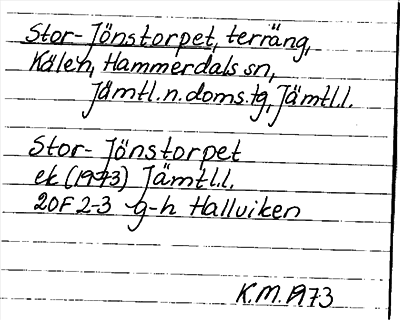 Stor-Jönstorpet, terräng,
Kälen, Hammerdals sn,
Jämtl.n.doms.tg, Jämtl.l.
Stor-Jönstorpet
ek (1973) Jämtl.l.
20F 2-3 g-h Hallviken
K.M. 1973